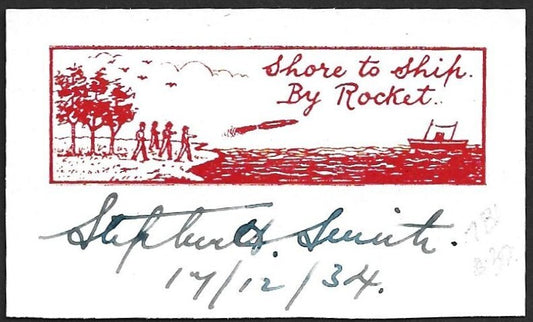 Shore to Ship.
By Rocket..
Stephen H. Smith.
17/12/34.